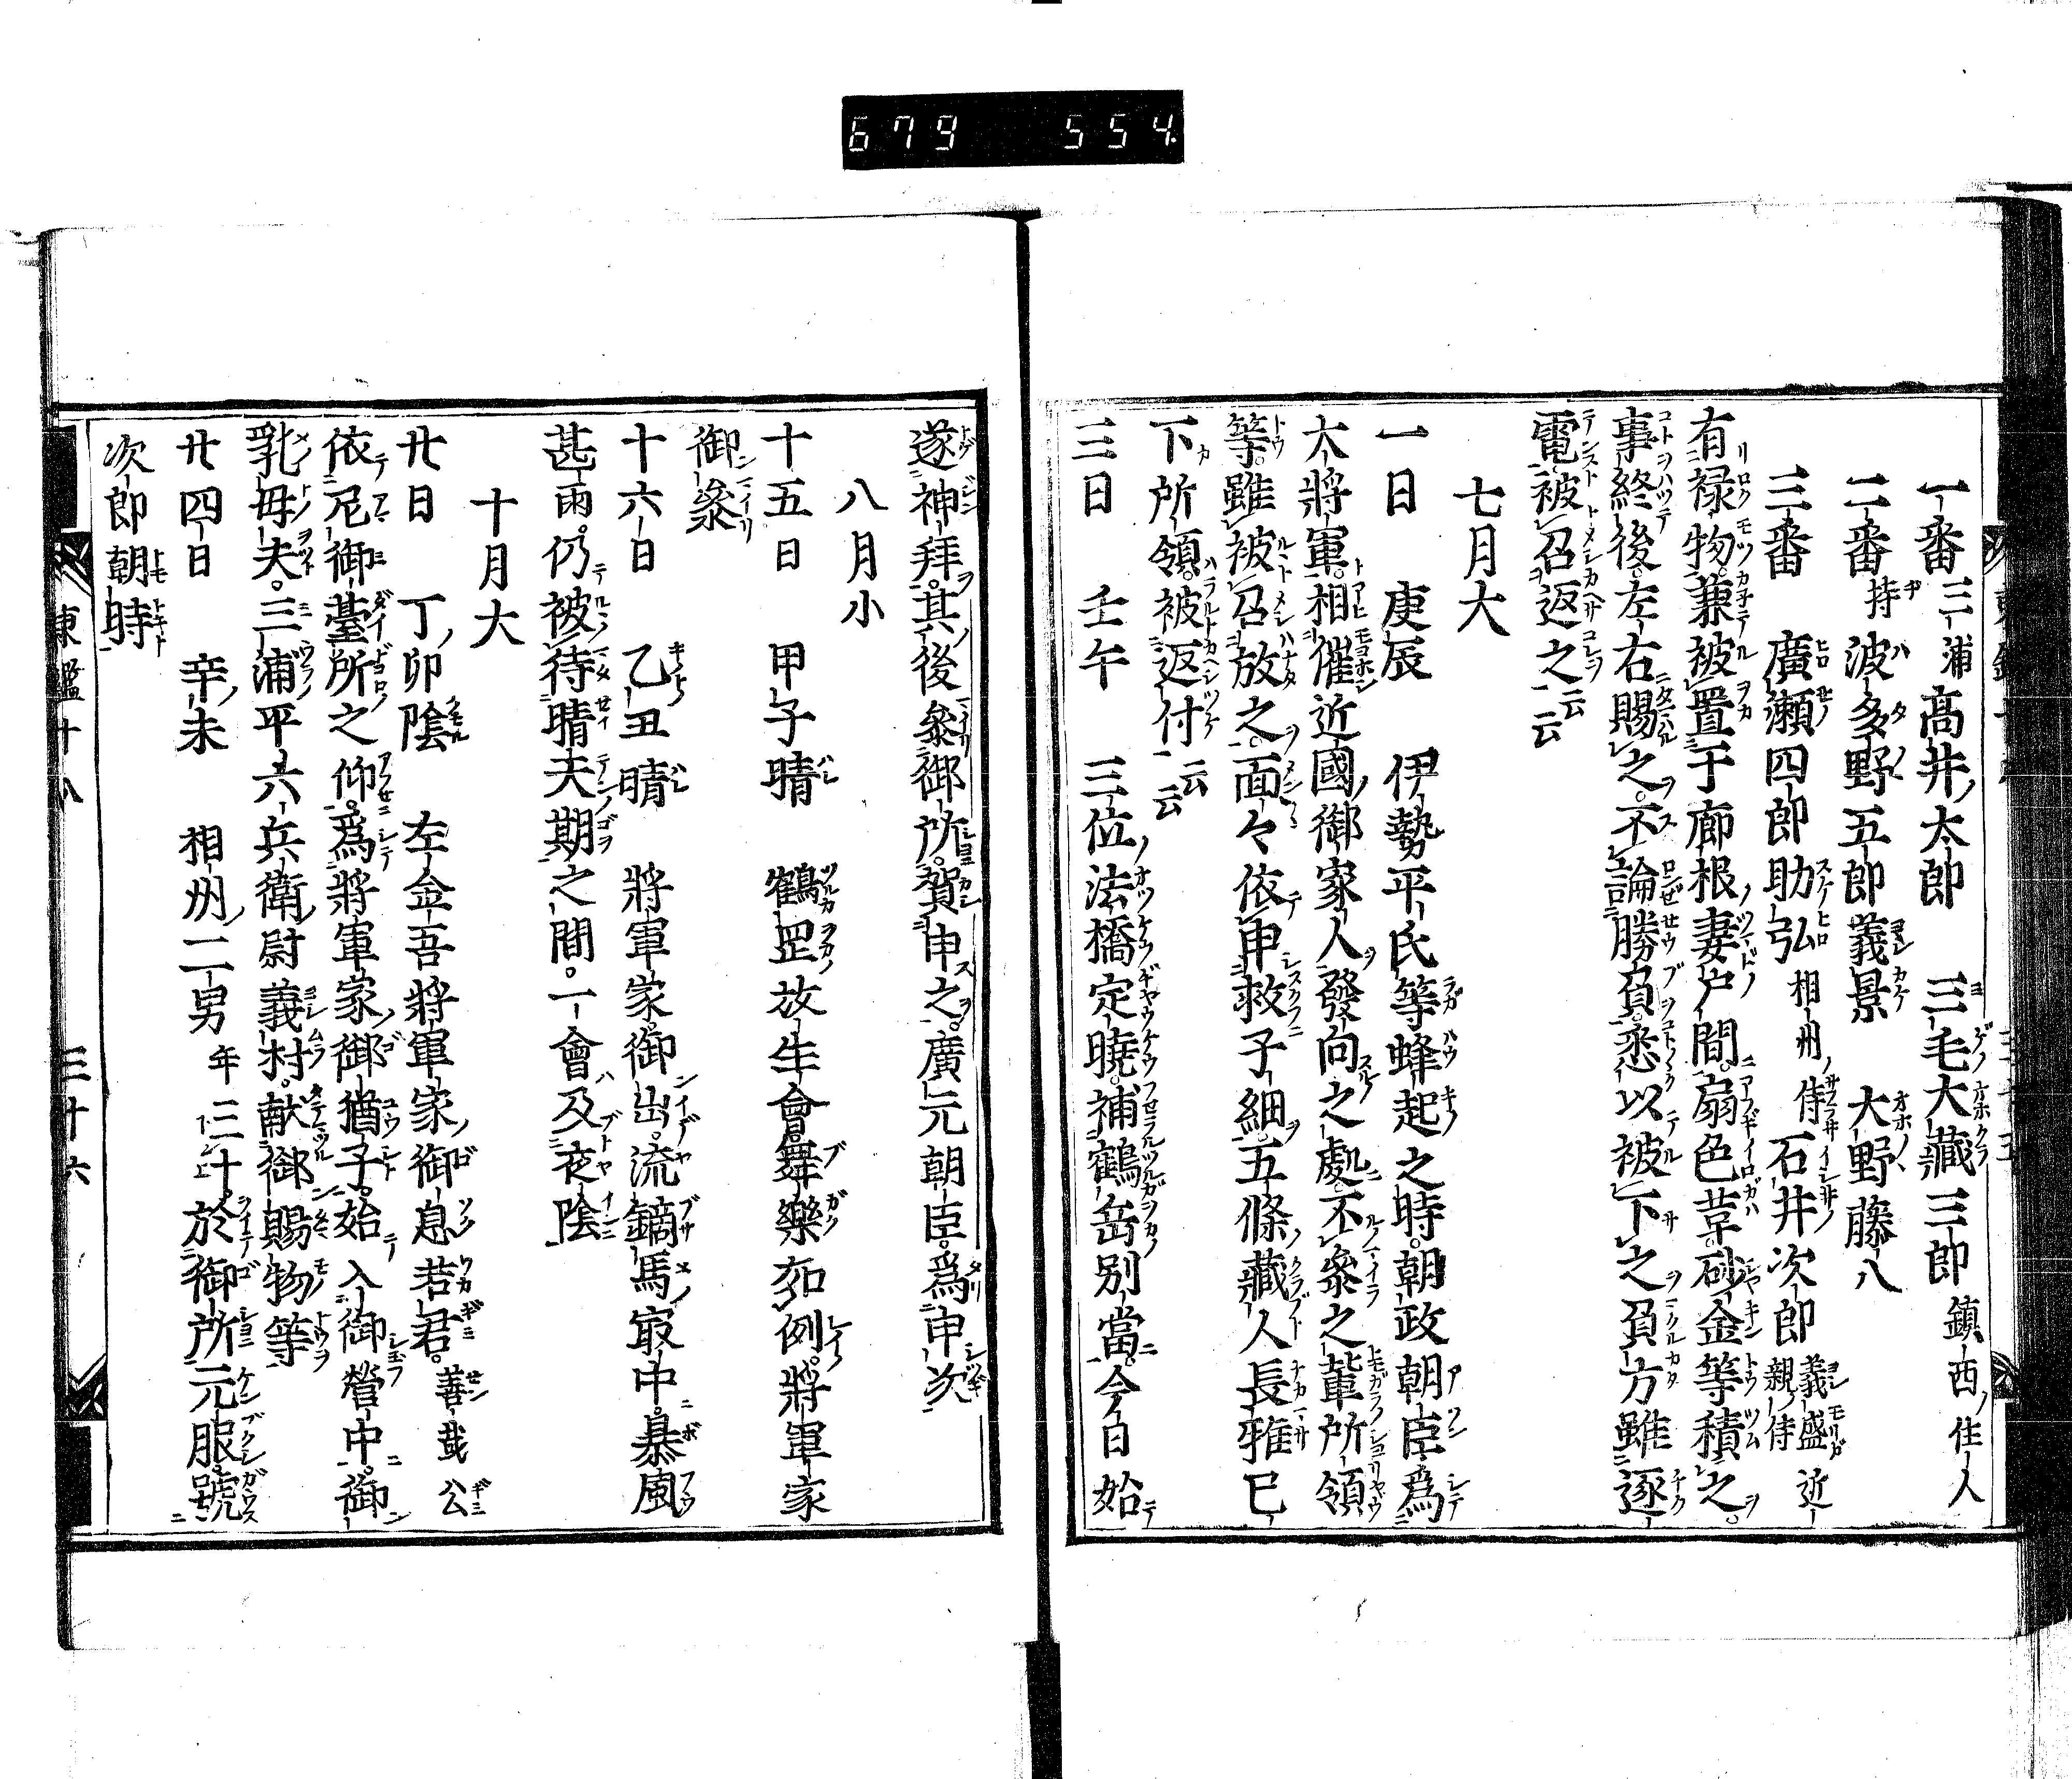 679 554
一番 三浦高井太郎 三毛大藏三郎 鎮西住人
二番 持波多野五郎義景 大野藤八
三番 廣瀬四郎助弘 相州侍 石井次郎 義盛近親侍
有禄物兼被置于廊根妻戸間扇色革砂金等積之
事終後左右賜之不論勝負悉以被下之負方雖逐
電被召返之云云
七月大
一日 庚辰 伊勢平氏等蜂起之時朝政朝臣爲
大將軍相催近國御家人發向之處不參之輩所領
等雖被召放之面々依申救子細五條藏人長雅巳
下所領被返付云云
三日 壬午 三位法橋定曉補鶴岳別當今日始
遂神拜其後參御所賀申之廣元朝臣爲申次
八月小
十五日 甲子晴 鶴罡放生會舞樂如例將軍家
御參
十六日 乙丑晴 將軍家御出流鏑馬最中暴風
甚雨仍被待晴天期之間一會及夜陰
十月大
廿日 丁卯陰 左金吾將軍家御息若君善哉公
依尼御臺所之仰爲將軍家御猶子始入御營中御
乳母夫三浦平六兵衛尉義村献御賜物等
廿四日 辛未 相州二男年三十於御所元服號
次郎朝時
東鑑十八 三十六